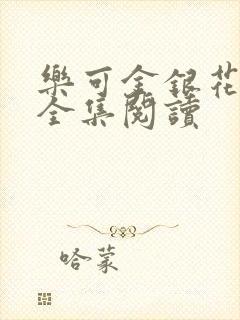 樂可金銀花
全集閱讀
哈蒙